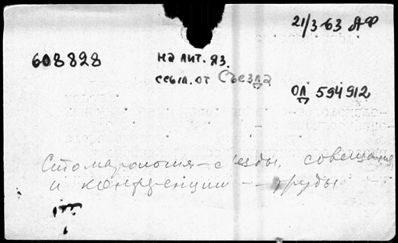 21/3-63
608828
на лит. яз.
ссыл. от Съезда
ОП 594912
Стоматология - съезды, совещания
и конференции - труды